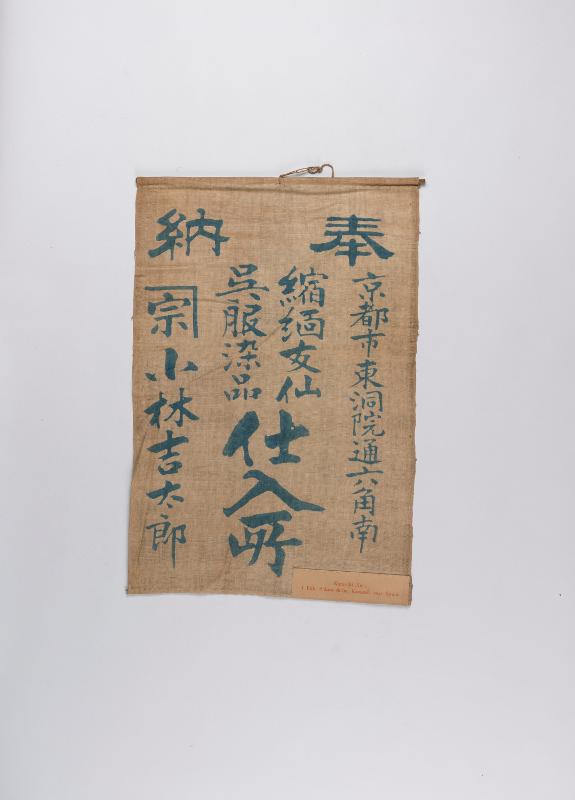 奉納
京都市東洞院通六角南
縮緬友仙
呉服染品
仕入所
宗 小林吉太郎